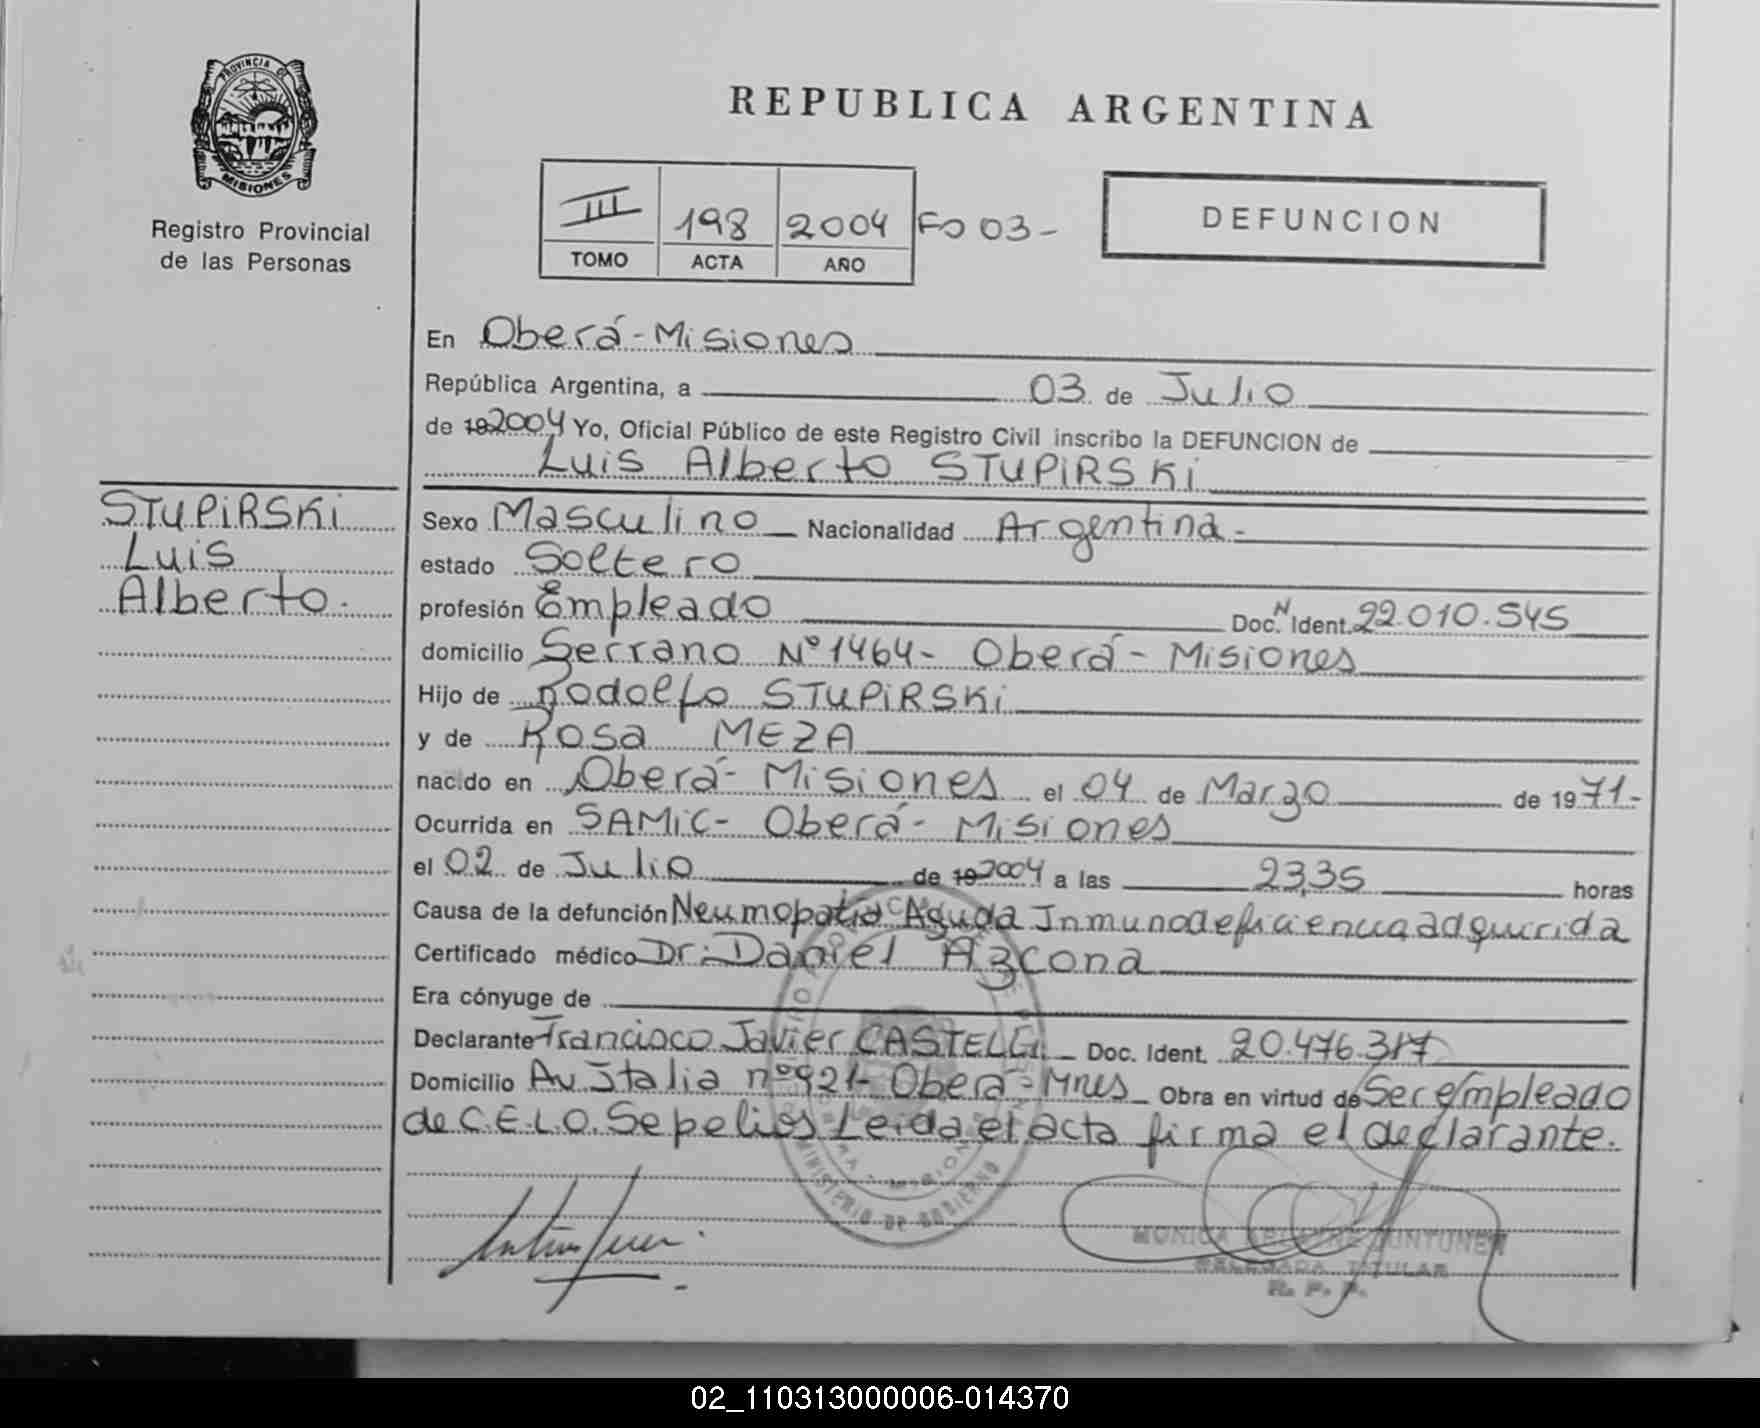 PROVINCIA DE
MISIONES
Registro Provincial
de las Personas
REPUBLICA ARGENTINA
III 198 2004 Fo 03-
TOMO ACTA AÑO
DEFUNCION
En Oberá-Misiones
República Argentina, a 03 de Julio
de 192004 Yo, Oficial Público de este Registro Civil inscribo la DEFUNCION de
Luis Alberto STUPIRSKI
STUPIRSKI
Luis
Alberto.
Sexo Masculino Nacionalidad Argentina-
estado Soltero
profesión Empleado Doc. N Ident. 22.010.545
domicilio Serrano Nº 1464- Oberá- Misiones
Hijo de Rodolfo STUPIRSKI
y de Rosa MEZA
nacido en Oberá- Misiones el 04 de Marzo de 1971-
Ocurrida en SAMIC- Oberá- Misiones
el 02 de Julio de 192004 a las 23,35 horas
Causa de la defunción Neumopatia Aguda Inmunodeficiencia adquirida
Certificado médico Dr. Daniel Azcona
Era cónyuge de
Declarante Francisco Javier Doc. Ident. 20.476.317
Domicilio Av Italia nº921- Oberá- Mnes Obra en virtud de Ser empleado
de C.E.L.O. Sepelios Leida el acta firma el declarante.
MINISTERIO DE GOBIERNO
MONICA
DELEGADA TITULAR
R. P. P.
02_110313000006-014370